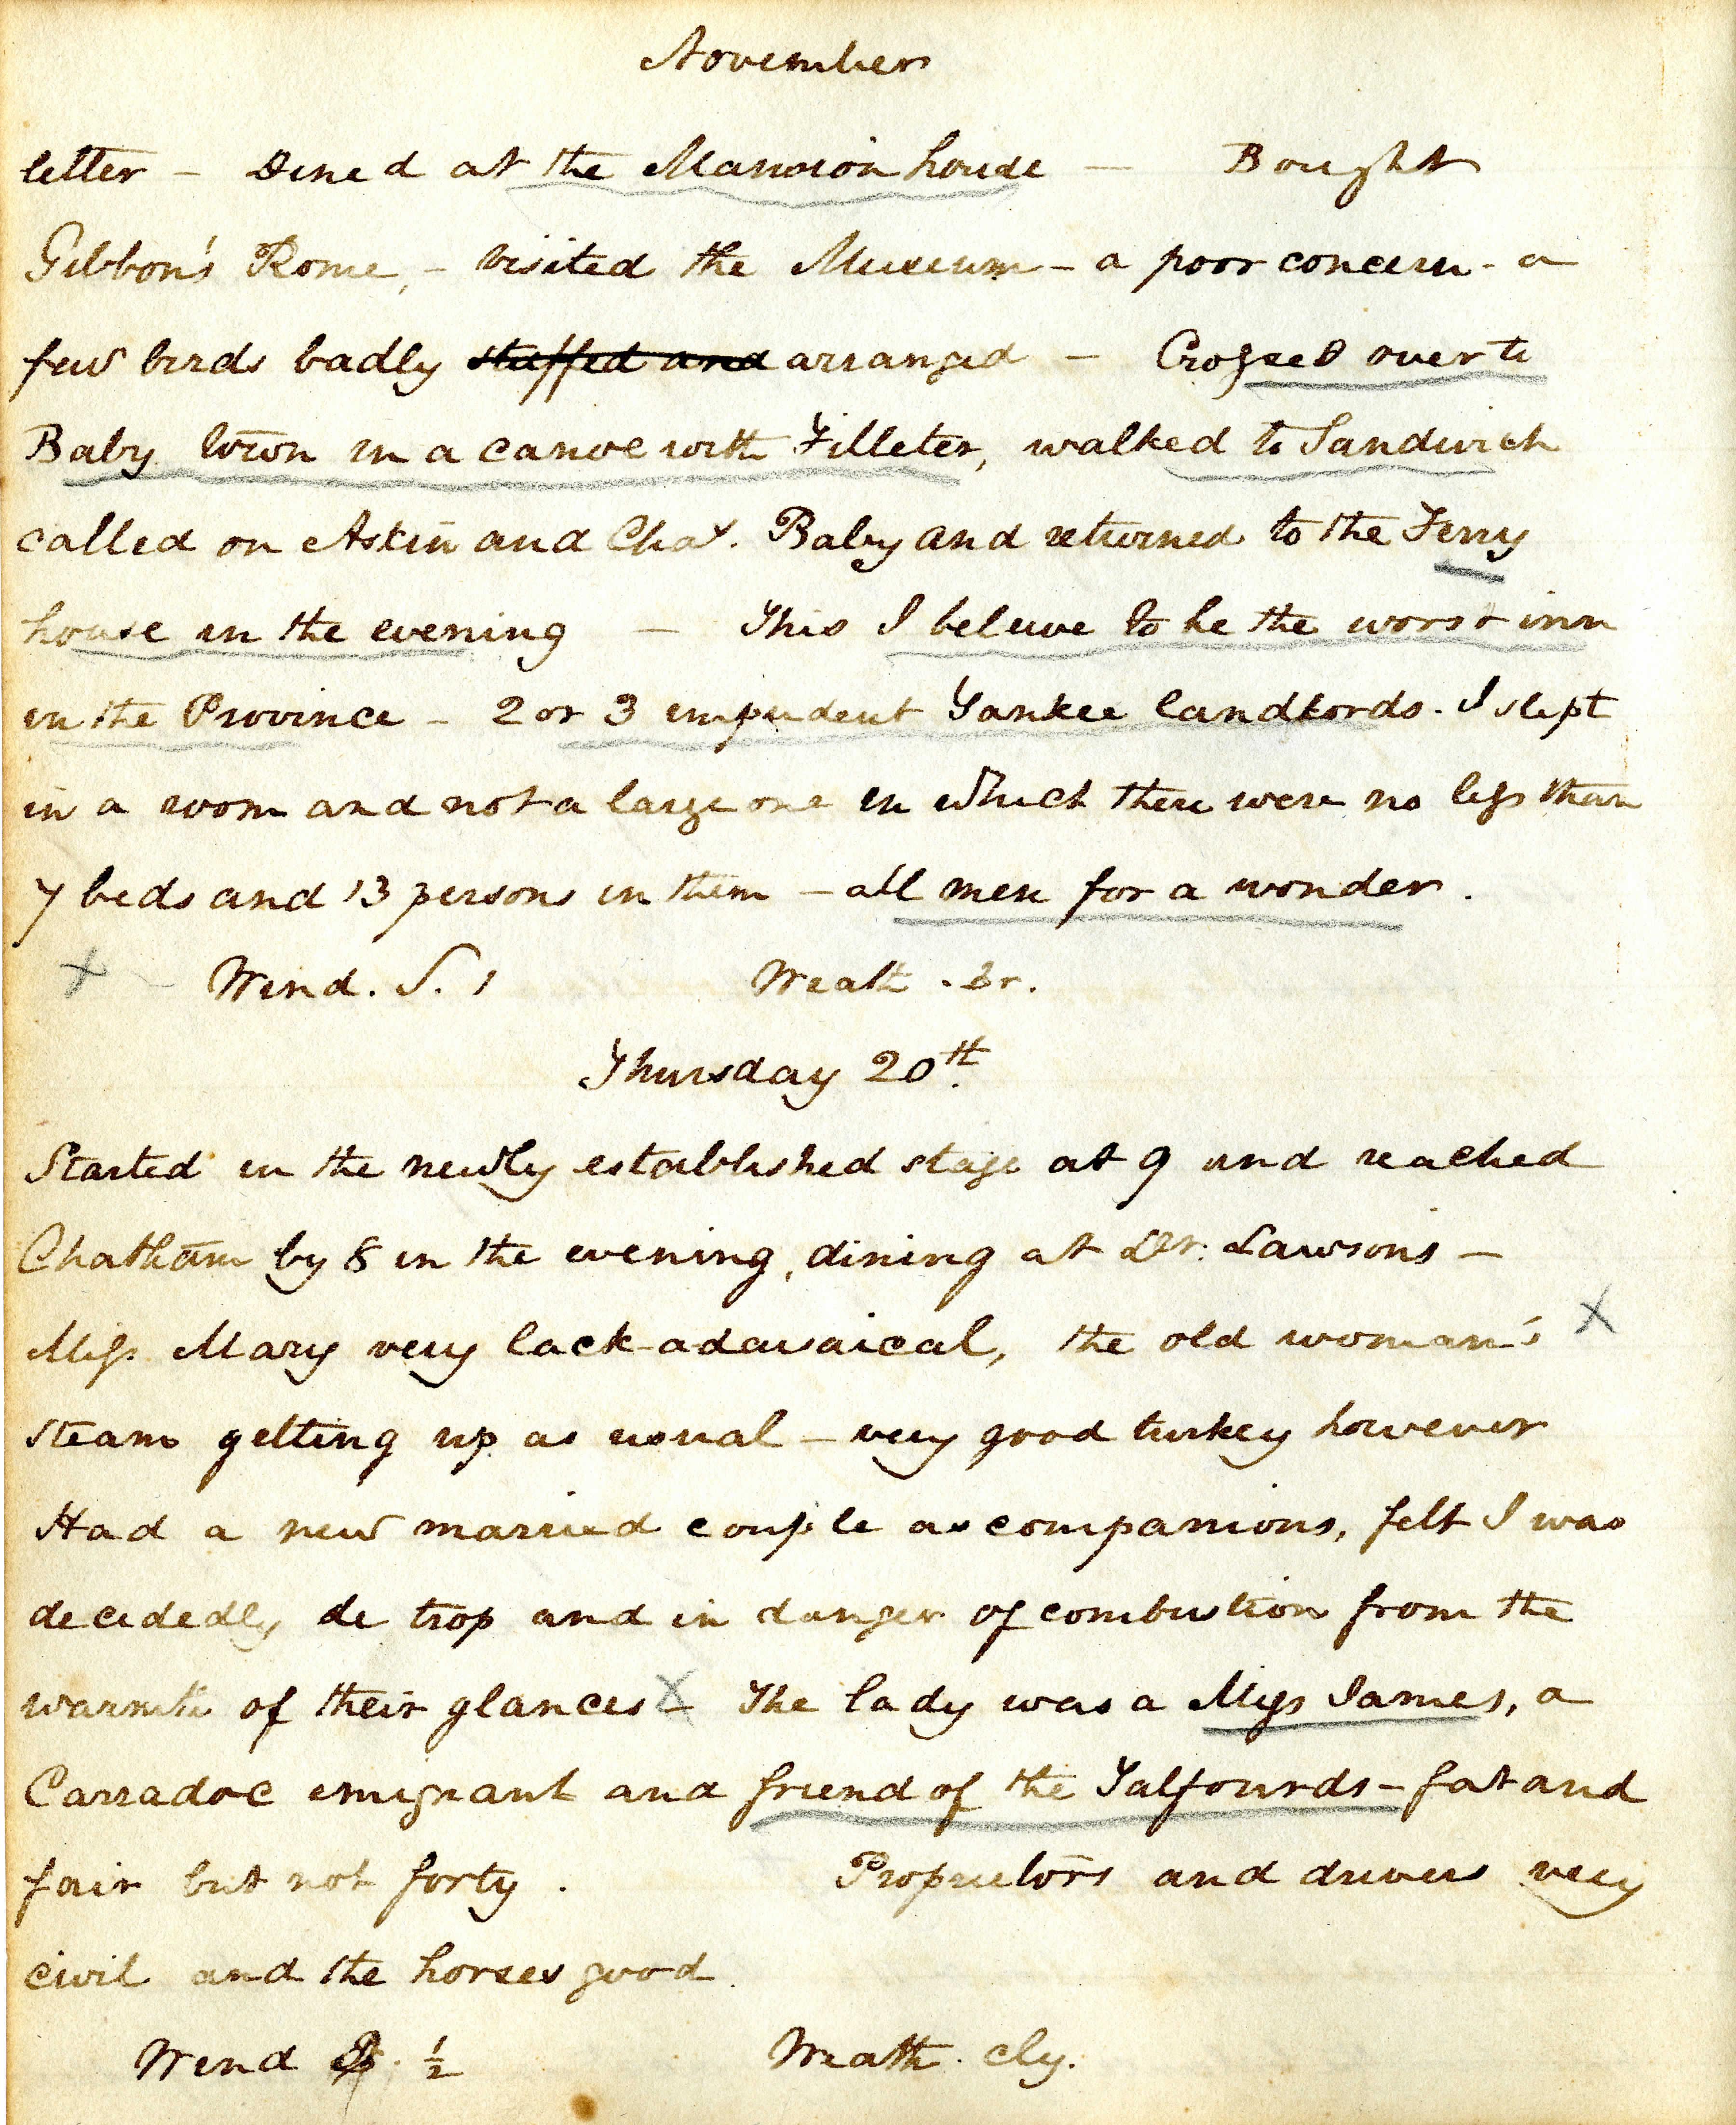 November
letter – Dined at the Mansion house – Bought
Gibbon's Rome, – visited the Museum – a poor concern – a
few birds badly stuffed and arranged – Crossed over to
Baby town in a canoe with Filleter, walked to Sandwich
called on Askin and Chas. Baby and returned to the Ferry
house in the evening – This I believe to be the worst inn
in the Province – 2 or 3 impudent Yankee landlords. I slept
in a room and not a large one in which there were no less than
7 beds and 13 persons in them – all men for a wonder.
x Wind. S. 1 Weath. Br.
Thursday 20th.
Started in the newly established stage at 9 and reached
Chatham by 8 in the evening, dining at Dr. Lawsons –
Miss Mary very lack-adaisaical, the old woman's x
steam getting up as usual – very good turkey however
Had a new married couple as companions, felt I was
decidedly de trop and in danger of combustion from the
warmth of their glances x – The lady was a Miss James, a
Carradoc emigrant and friend of the Talfourds – fat and
fair but not forty. Proprietors and drivers very
civil and the horses good.
Wind ½ Weath. cly.